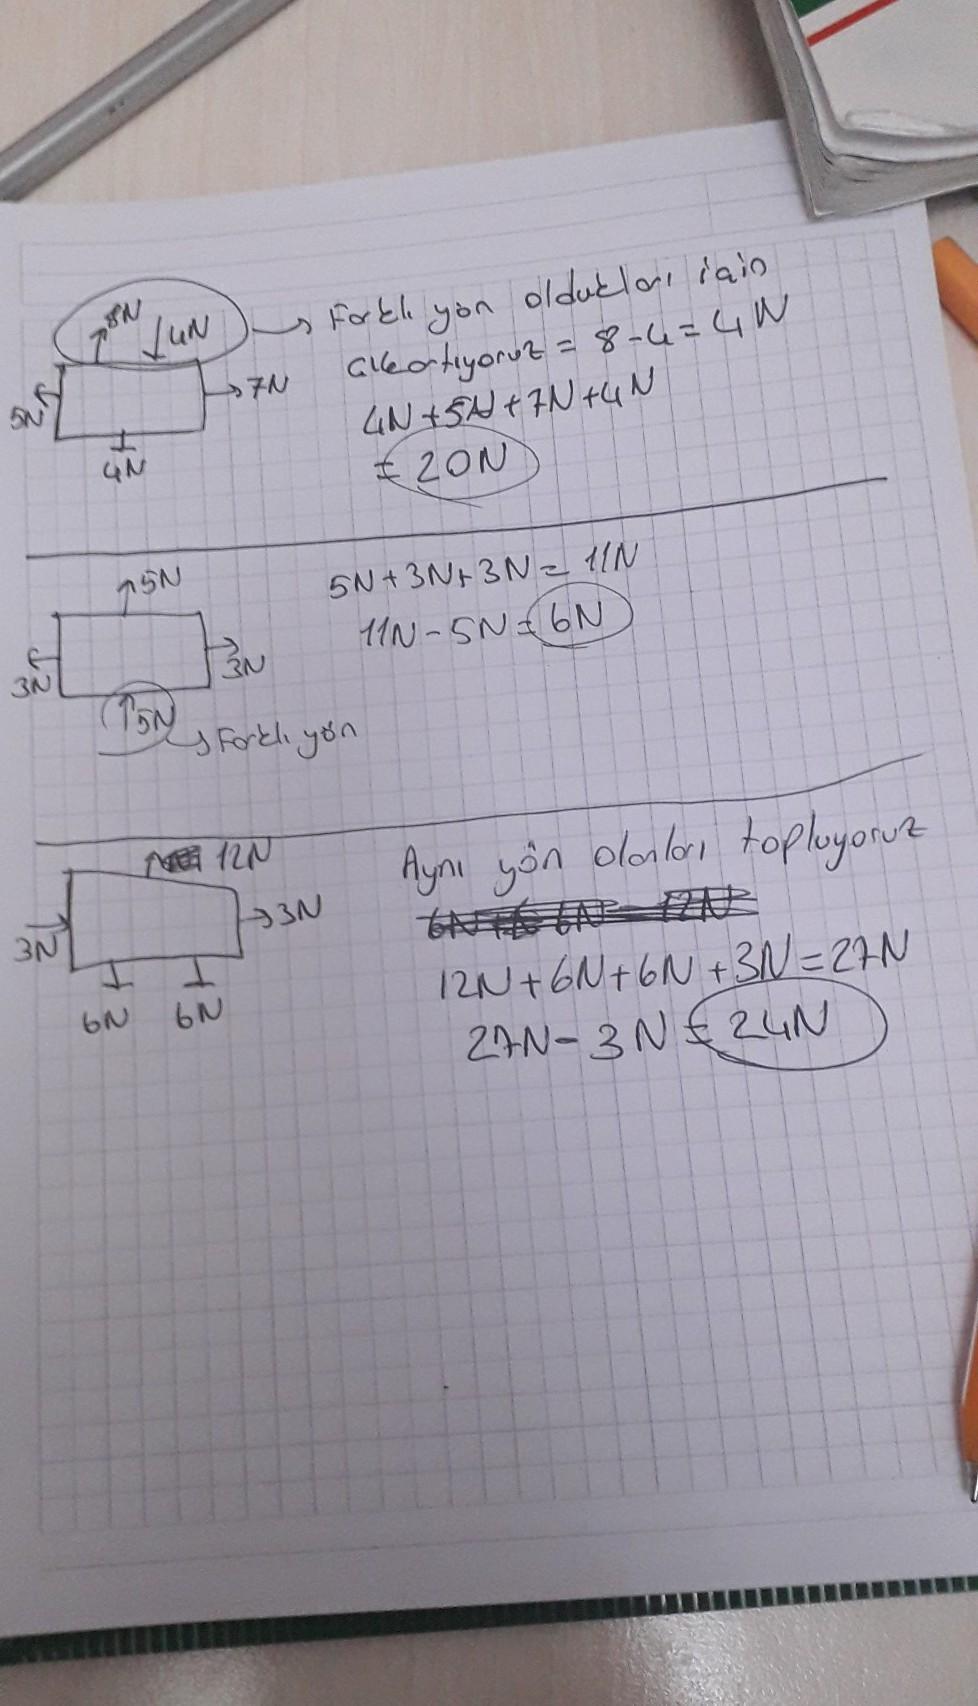 8N
4N
5N
7N
4N
Farklı yön oldukları için
çıkartıyoruz = 8-4 = 4N
4N+5N+7N+4N
= 20N
5N
3N
3N
5N
Farklı yön
5N+3N+3N = 11N
11N-5N = 6N
12N
3N
3N
6N
6N
Aynı yön olanları topluyoruz
12N+6N+6N+3N=27N
27N-3N = 24N